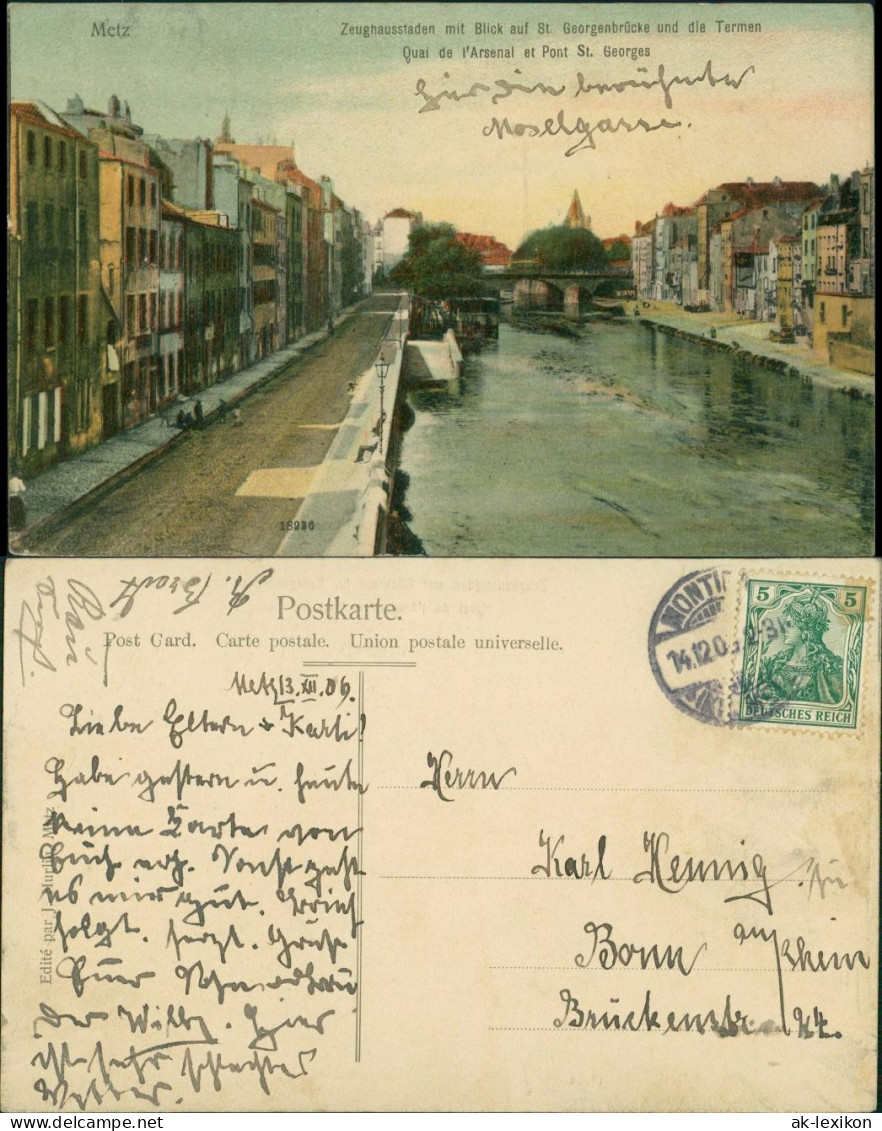 Metz
Zeughausstaden mit Blick auf St. Georgenbrücke und die Termen
Quai de l'Arsenal et Pont St. Georges
Hier die berühmte
Moselgasse.
18936
Postkarte.
Post Card. Carte postale. Union postale universelle.
MONTI
14.12.0
5 5
DEUTSCHES REICH
Metz 13.XII.06.
Liebe Eltern + Karli!
Habe gestern u. heute
keine Karte von
Euch erh. Sonst geht
es mir gut. Brief
folgt. herzl. Grüße
Euer
der Willy. Hier
ist sehr schlechtes
Wetter.
Edité par J. Metz
Herrn
Karl Hennig.
Bonn am/Rhein
Brückenstr. 44.
ak-lexikon